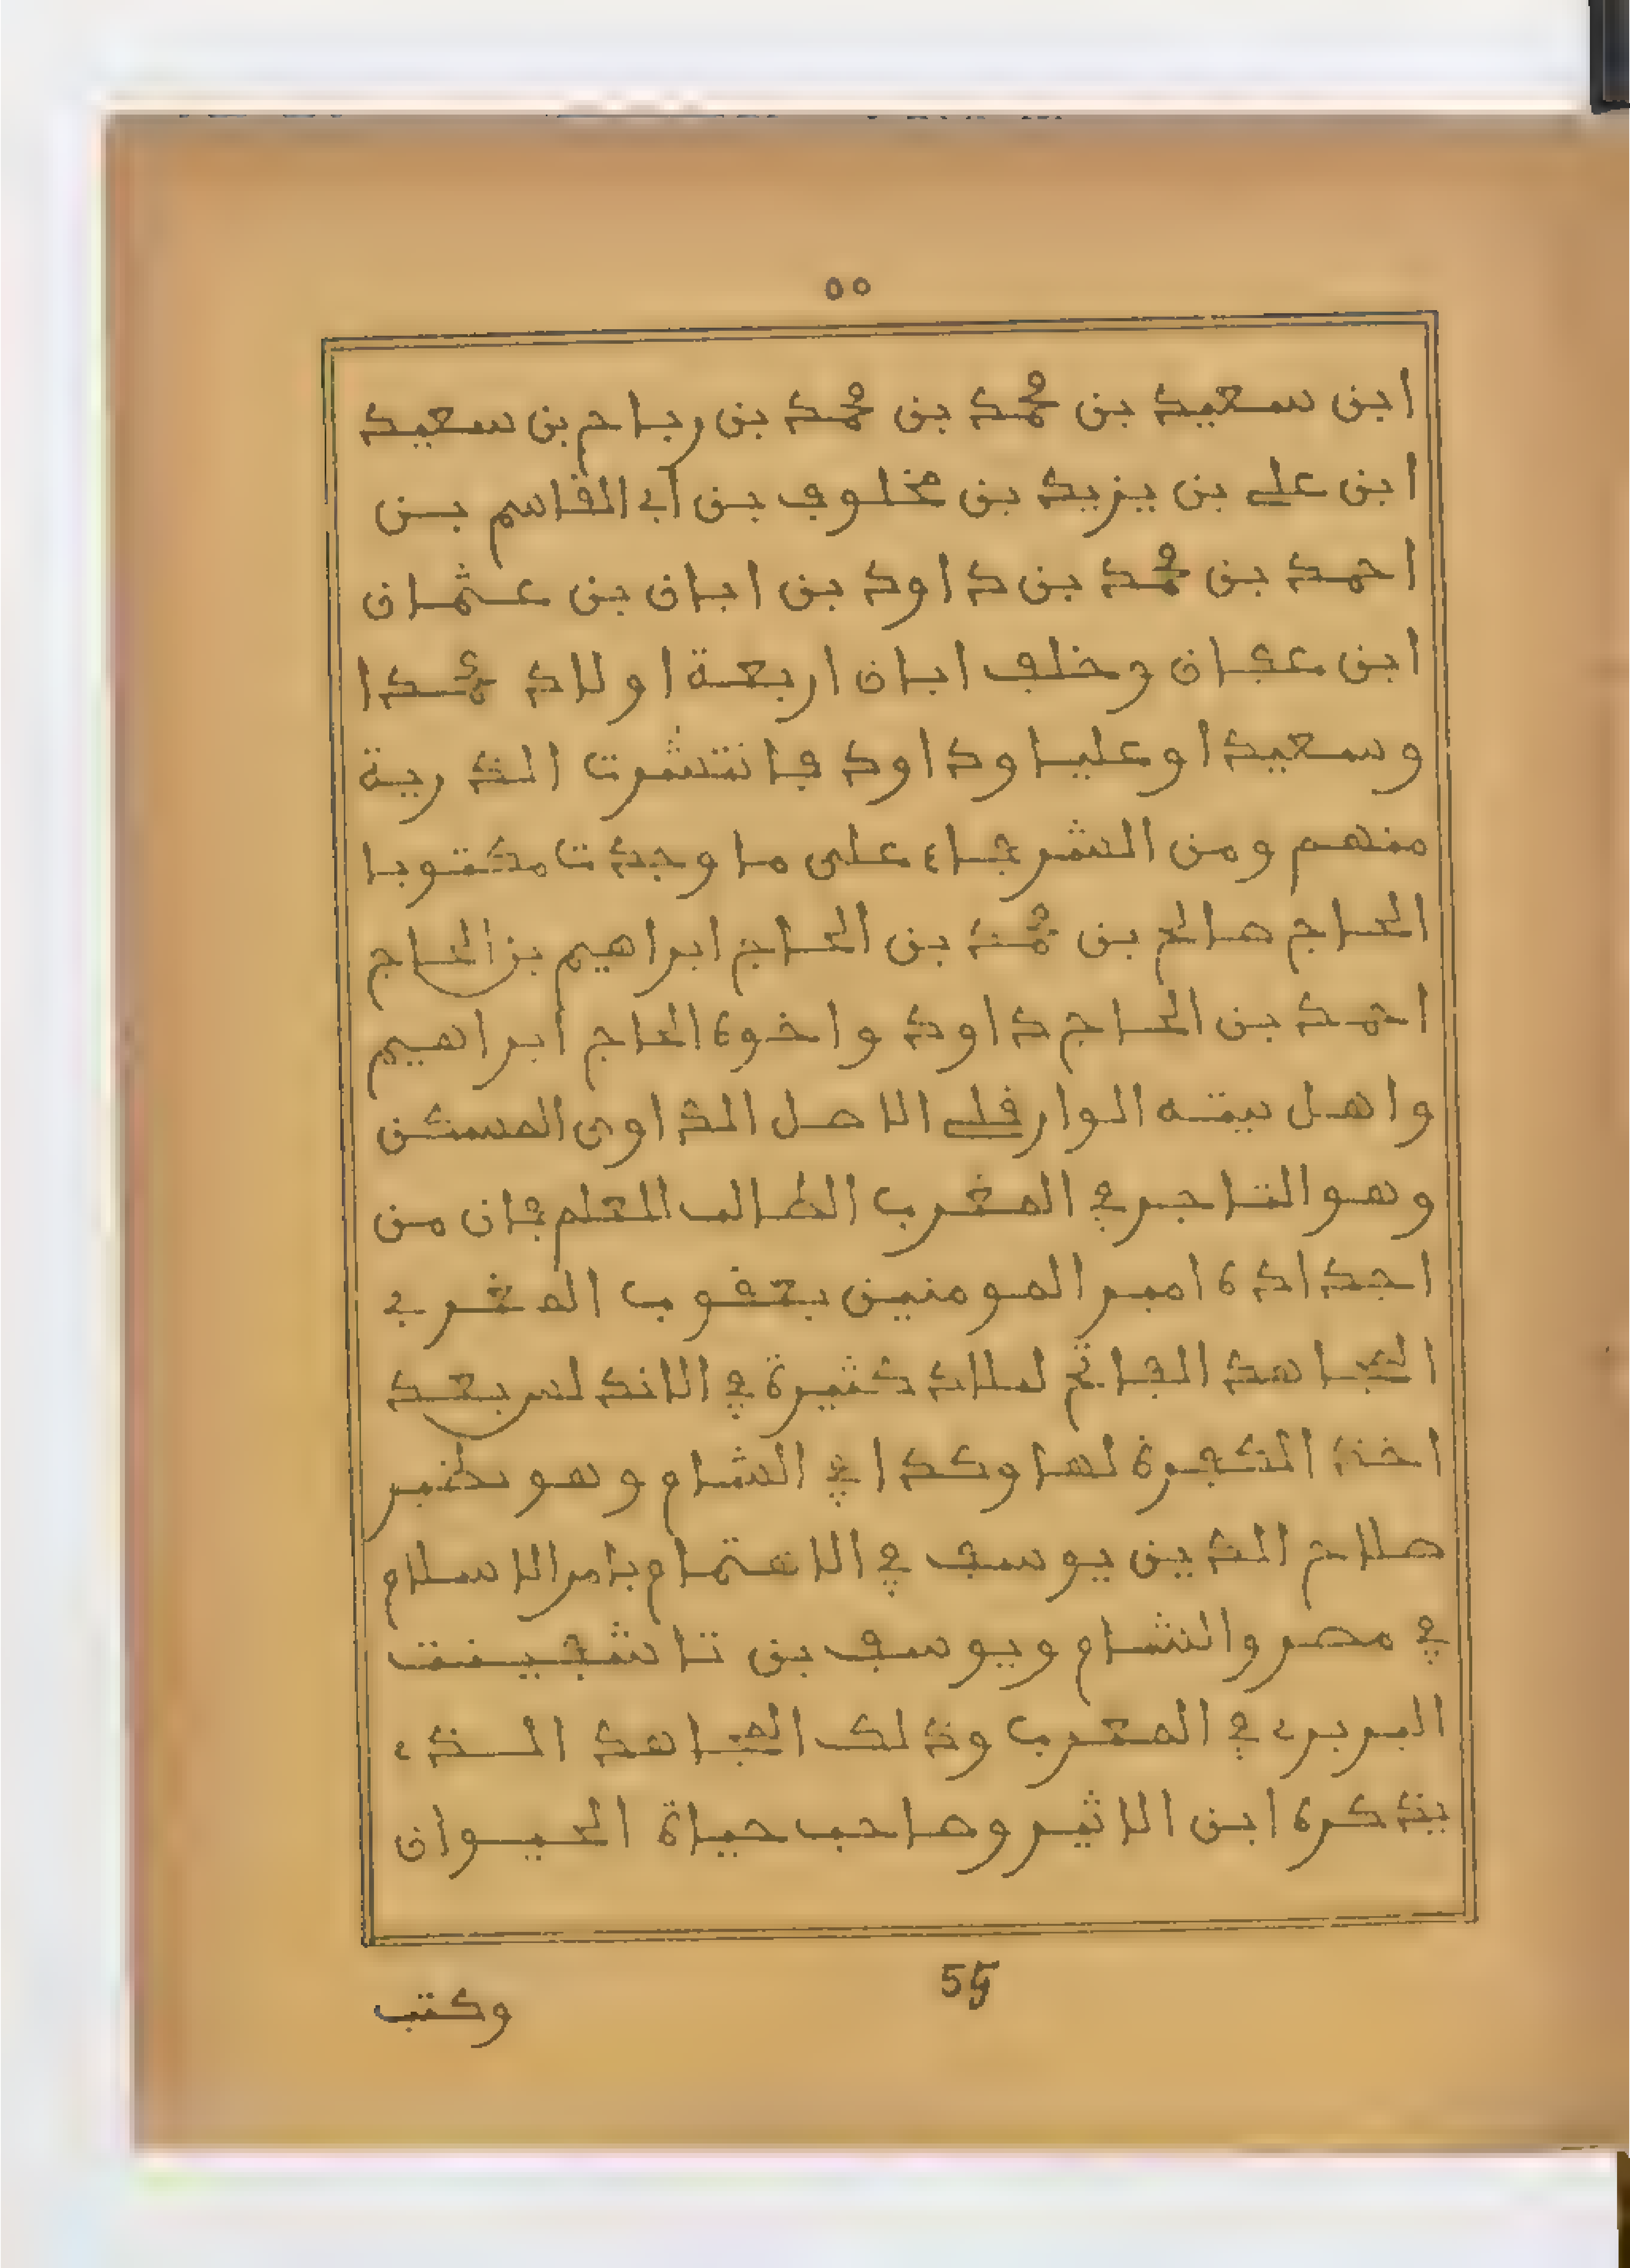 ٥٥
ابن سعيد بن محمد بن محمد بن رباح بن سعيد
ابن علي بن يزيد بن مخلوف بن أبي القاسم بن
احمد بن محمد بن داود بن ابان بن عثمان
ابن عفان وخلف ابان اربعة اولاد محمدا
وسعيدا وعليا وداود فانتشرت الذرية
منهم ومن الشرفاء على ما وجدت مكتوبا
الحاج صالح بن محمد بن الحاج ابراهيم بن الحاج
احمد بن الحاج داود واخوه الحاج ابراهيم
واهل بيته الوارقلي الاصل الداوي المسكن
وهو التاجر في المغرب الطالب المعلم فان من
اجداده امير المومنين يعقوب المغربي
المجاهد الفاتح لبلاد كثيرة في الاندلس بعد
اخذ الكفرة لها وكذا في الشام وهو نظير
صلاح الدين يوسف في الاهتمام بامر الاسلام
في مصر والشام ويوسف بن تاشفينت
البربري في المغرب وذلك المجاهد الذي
يذكره ابن الاثير وصاحب حياة الحيوان
55
وكتب